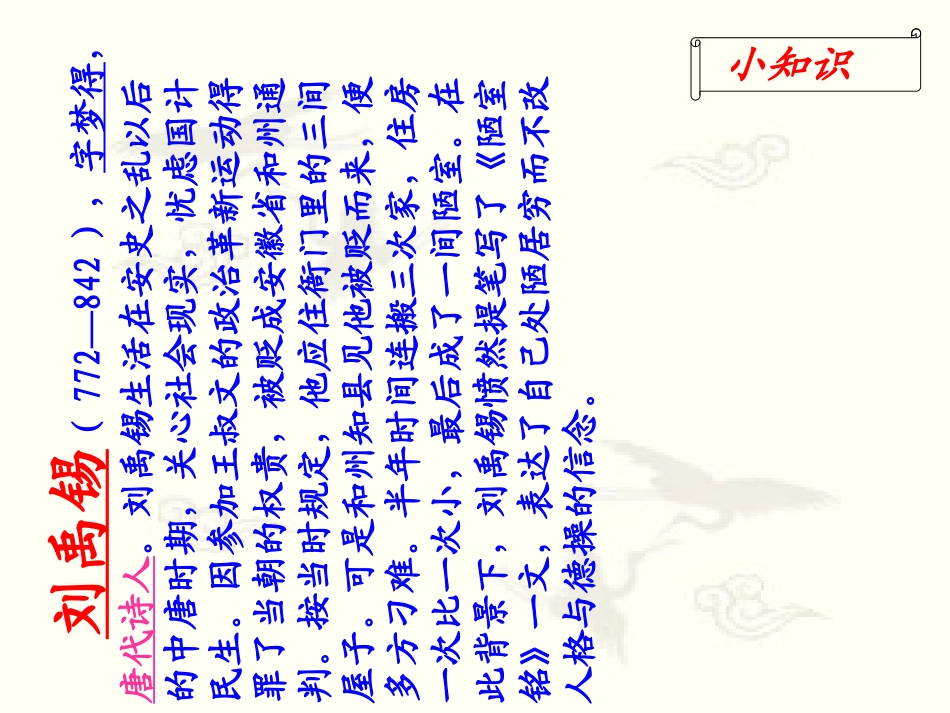 小知识
刘禹锡（772—842），字梦得，
唐代诗人。刘禹锡生活在安史之乱以后
的中唐时期，关心社会现实，忧虑国计
民生。因参加王叔文的政治革新运动得
罪了当朝的权贵，被贬成安徽省和州通
判。按当时规定，他应住衙门里的三间
屋子。可是和州知县见他被贬而来，便
多方刁难。半年时间连搬三次家，住房
一次比一次小，最后成了一间陋室。在
此背景下，刘禹锡愤然提笔写了《陋室
铭》一文，表达了自己处陋居穷而不改
人格与德操的信念。